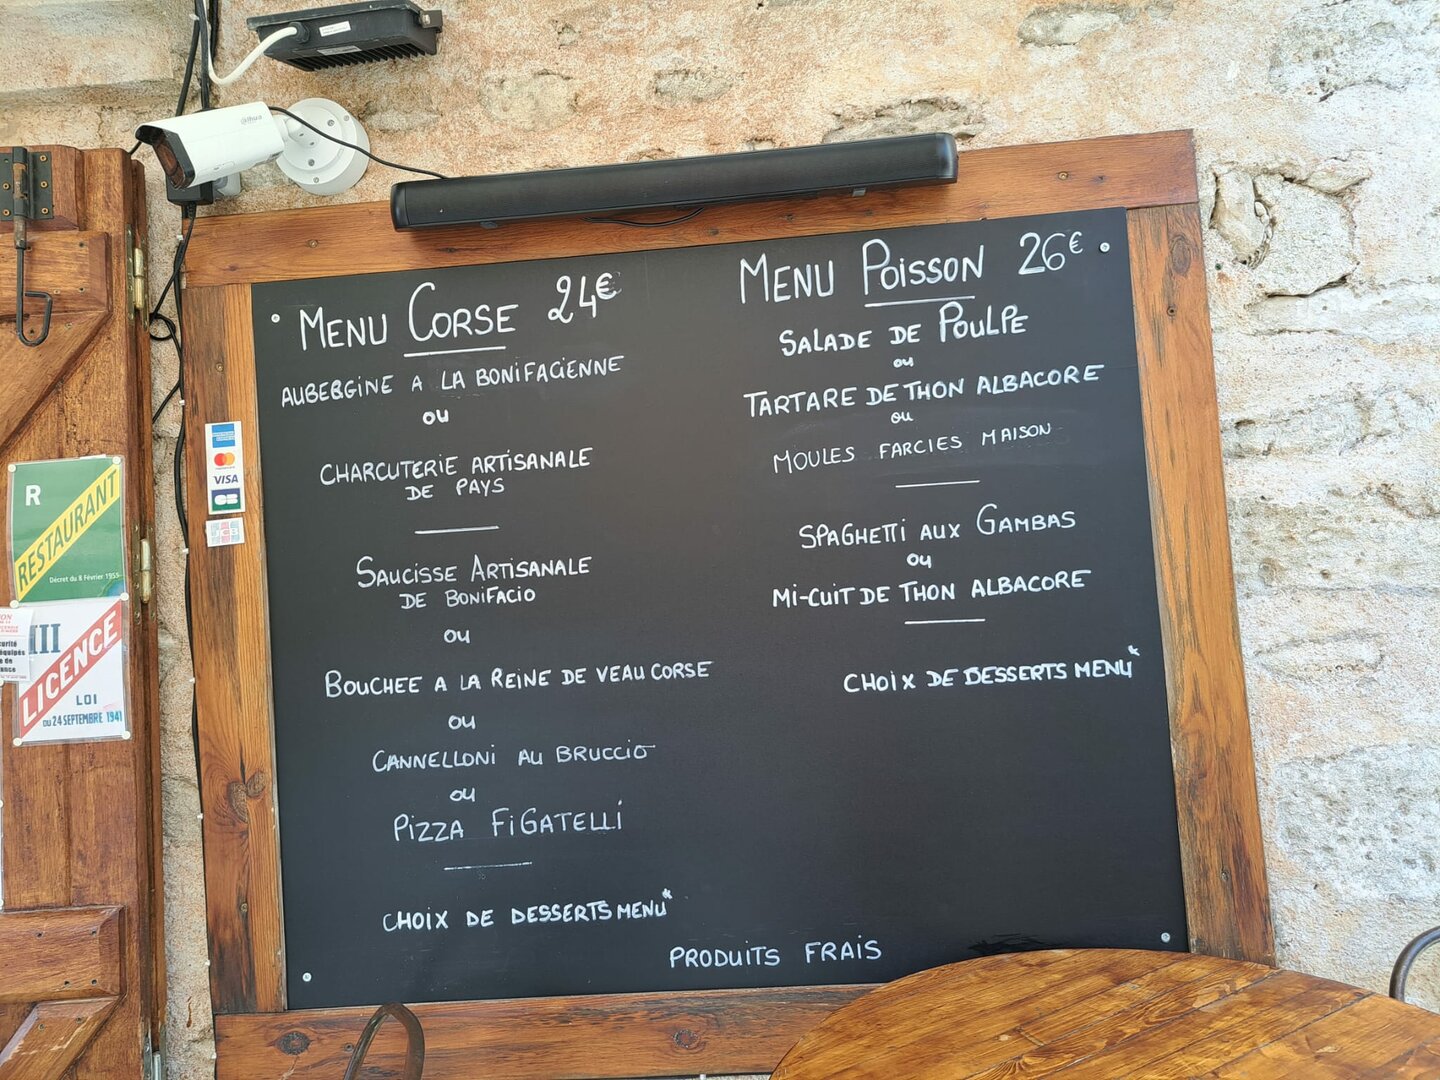 MENU CORSE 24€
AUBERGINE A LA BONIFACIENNE
OU
CHARCUTERIE ARTISANALE
DE PAYS
SAUCISSE ARTISANALE
DE BONIFACIO
OU
BOUCHEE A LA REINE DE VEAU CORSE
OU
CANNELLONI AU BRUCCIO
OU
PIZZA FIGATELLI
CHOIX DE DESSERTS MENU*
MENU POISSON 26€
SALADE DE POULPE
OU
TARTARE DE THON ALBACORE
OU
MOULES FARCIES MAISON
SPAGHETTI AUX GAMBAS
OU
MI-CUIT DE THON ALBACORE
CHOIX DE DESSERTS MENU*
PRODUITS FRAIS
alhua
VISA
CB
R
RESTAURANT
Décret du 8 Février 1955
III
LICENCE
LOI
DU 24 SEPTEMBRE 1941